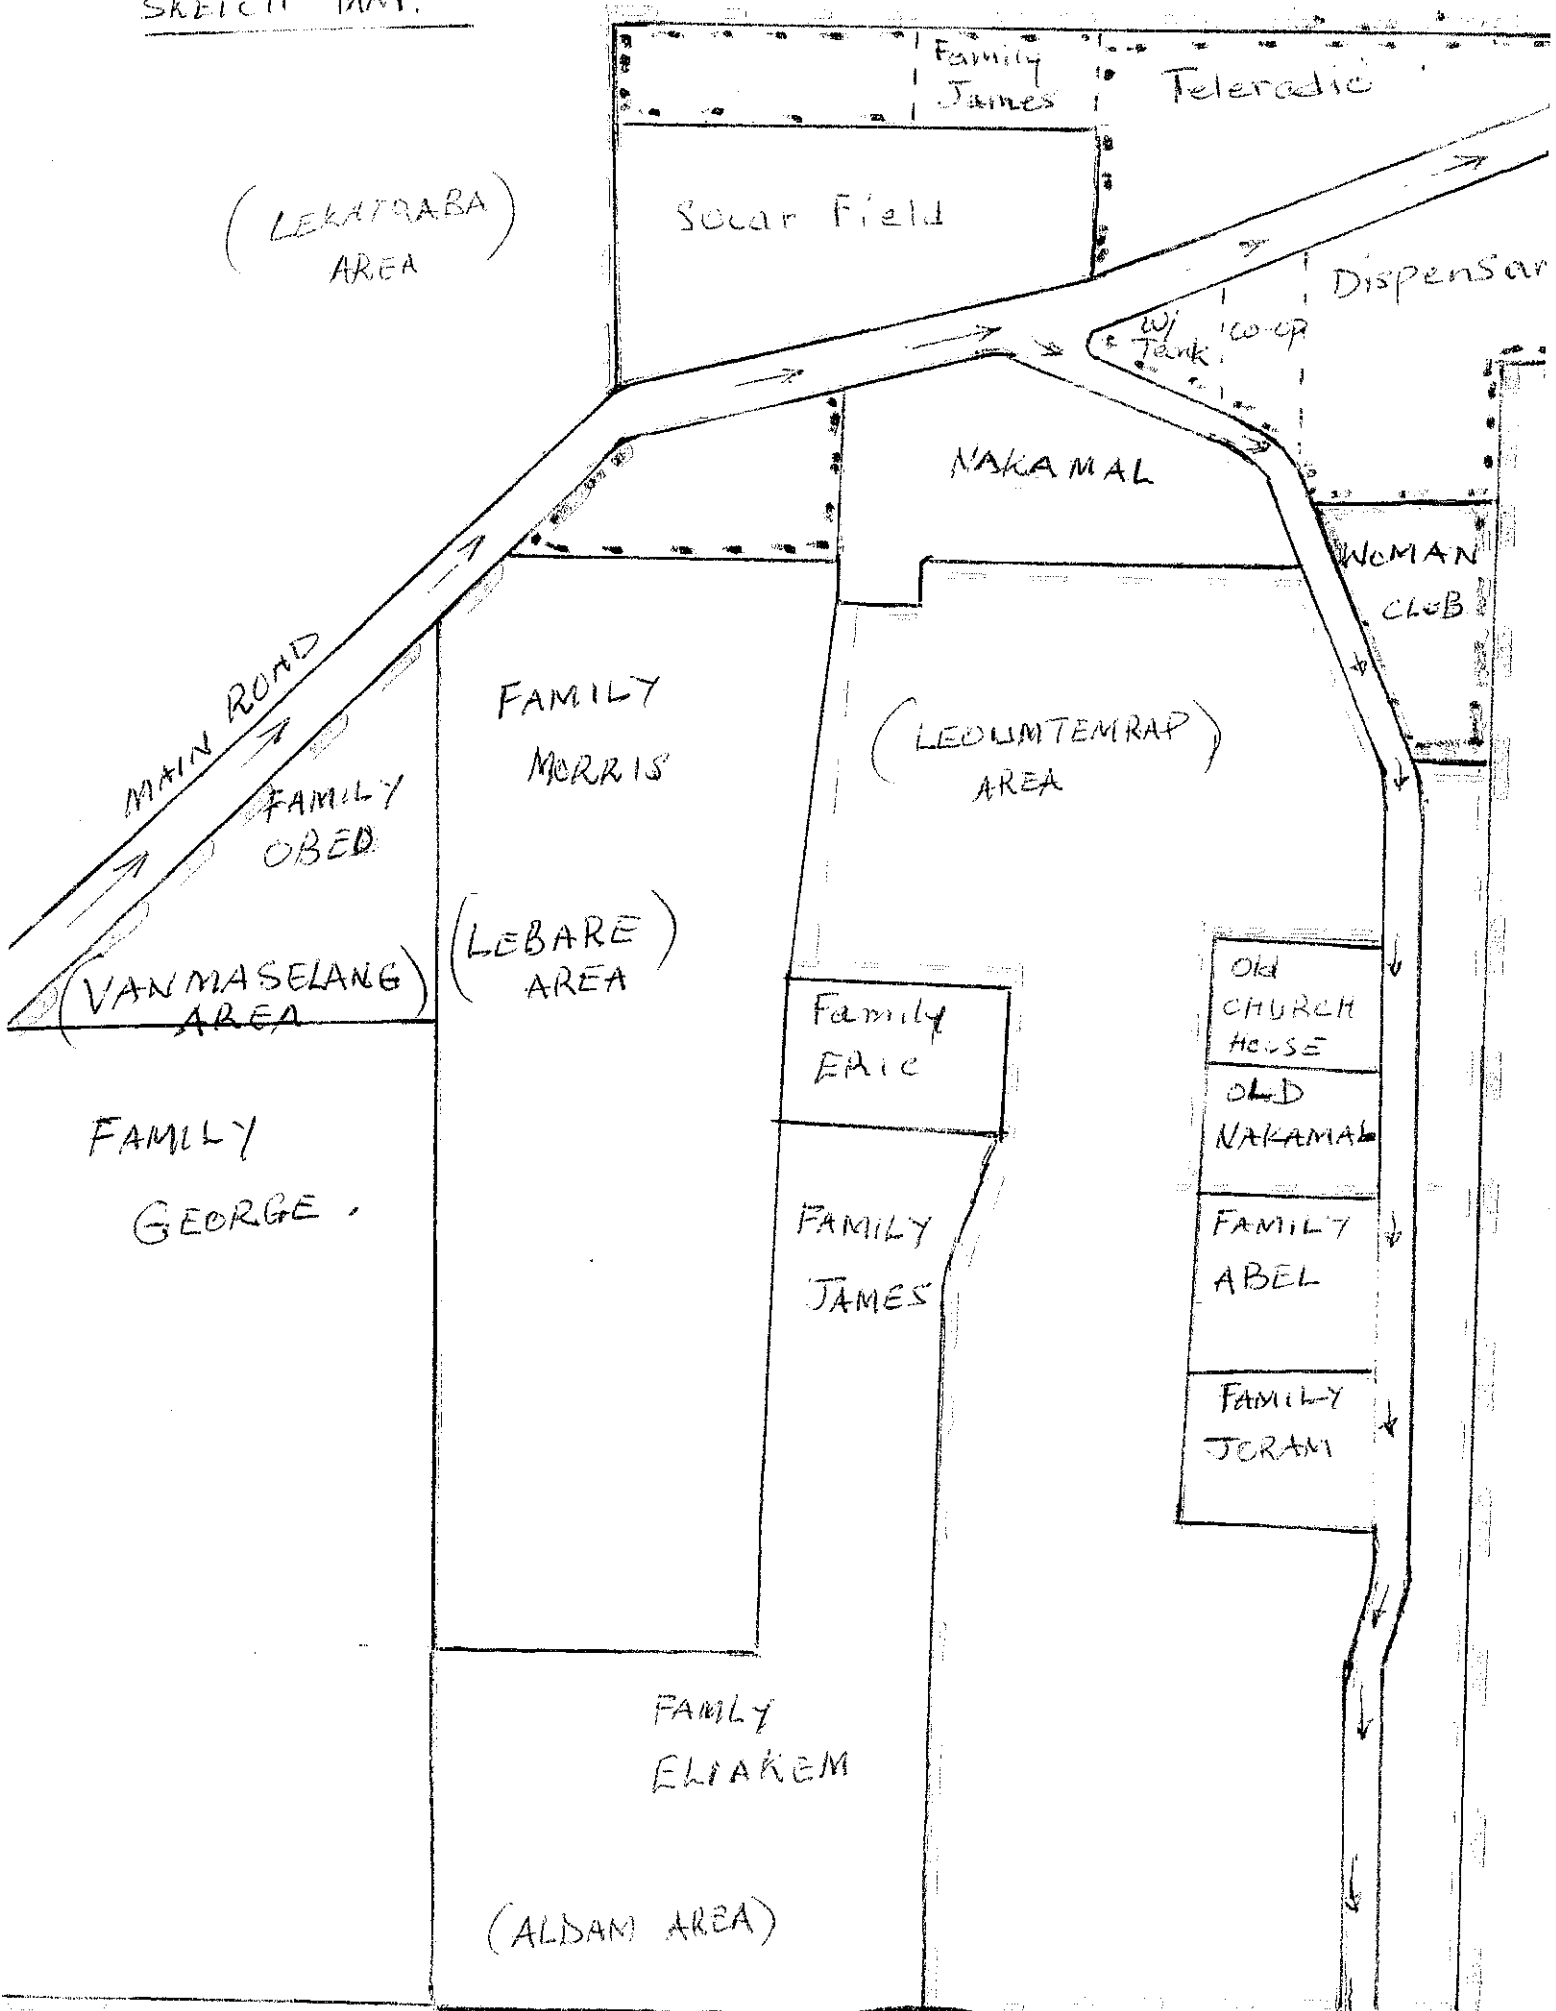 SKETCH
Family
James
Teleradio
(LEKATRABA)
AREA
Socar Field
Dispensar
W/
Tank
co-op
NAKAMAL
WOMAN
CLUB
MAIN ROAD
FAMILY
MORRIS
(LEOUMTEMRAP)
AREA
FAMILY
OBED
(LEBARE)
AREA
(VANMASELANG)
AREA
Family
ERIC
Old
CHURCH
HOUSE
OLD
NAKAMAL
FAMILY
GEORGE.
FAMILY
JAMES
FAMILY
ABEL
FAMILY
JORAM
FAMLY
ELIAKEM
(ALDAM AREA)